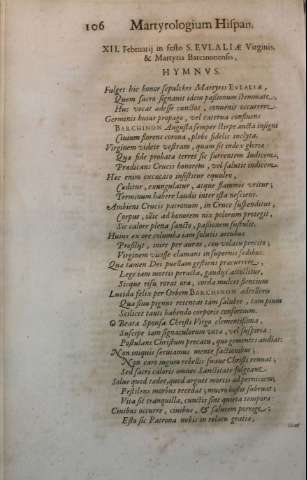 106 Martyrologium Hispan.
XII. Februarij in festo S. EVLALIÆ Virginis,
& Martyris Barcinonensis,
HYMNVS.
Fulget hic honor sepulchri Martyris EVLALIÆ,
Quem sacro signant idem passionum stemmate,
Huc vocat adesse cunctos, convenit occurrere.
Germinis huius propago, vel caterva confluens
BARCHINON Augusta semper stirpe aucta insigni
Civium florens corona, plebs fidelis inclyta.
Virginem videte vestram, quam sit index gloriæ
Qua fide probata terret sic furentem Iudicem,
Prædicans Crucis honorem, vel salutis indicem.
Hæc enim eneecato insistitur equuleo,
Cæditur, exungulatur, atque flammis uritur;
Terminum habere laudis inter ista nesciens.
Ambiens Crucis patronum, in Cruce suspenditur,
Corpus, illic ad honorem nix polorum protegit,
Sic calore plena sancto, passionem sustulit.
Huius ex ore columba tam salutis arcubus
Prosilijt, inire per auras, ceu volatu percito;
Virginem vicisse clamans in supernis sedibus.
Qua tamen Dei puellam gestiens præcurrere,
Lege iam mortis peracta, gaudijs attollitur,
Sicque visu rorat ora, corda mulcet sentium
Lucida felix per Orbem BARCHINON attolleris
Quæ sinu pignus retentas tam salubre, tam pium
Scilicet tauti habendo corporis consortium.
O Beata Sponsa Christi Virgo clementissima,
Suscipe iam signaculorum vota, vel suspiria:
Postulans Christum precatu, quo gementes audiat:
Non iniquis serviamus mente factionibus;
Non caro iugum rebellis fuscæ Christi renuat;
Sed sacri caloris omnes Sanctitate fulgeant.
Salus quod tadet, quod arguet mortis ad perniciem,
Pestilens morbus recedat; mucro hostis subruat;
Vita sit tranquilla, cunctis sint quieta tempora:
Civibus occurre, civibus, & salutem porrige;
Esto sic Patrona nobis in relatu gratiæ,